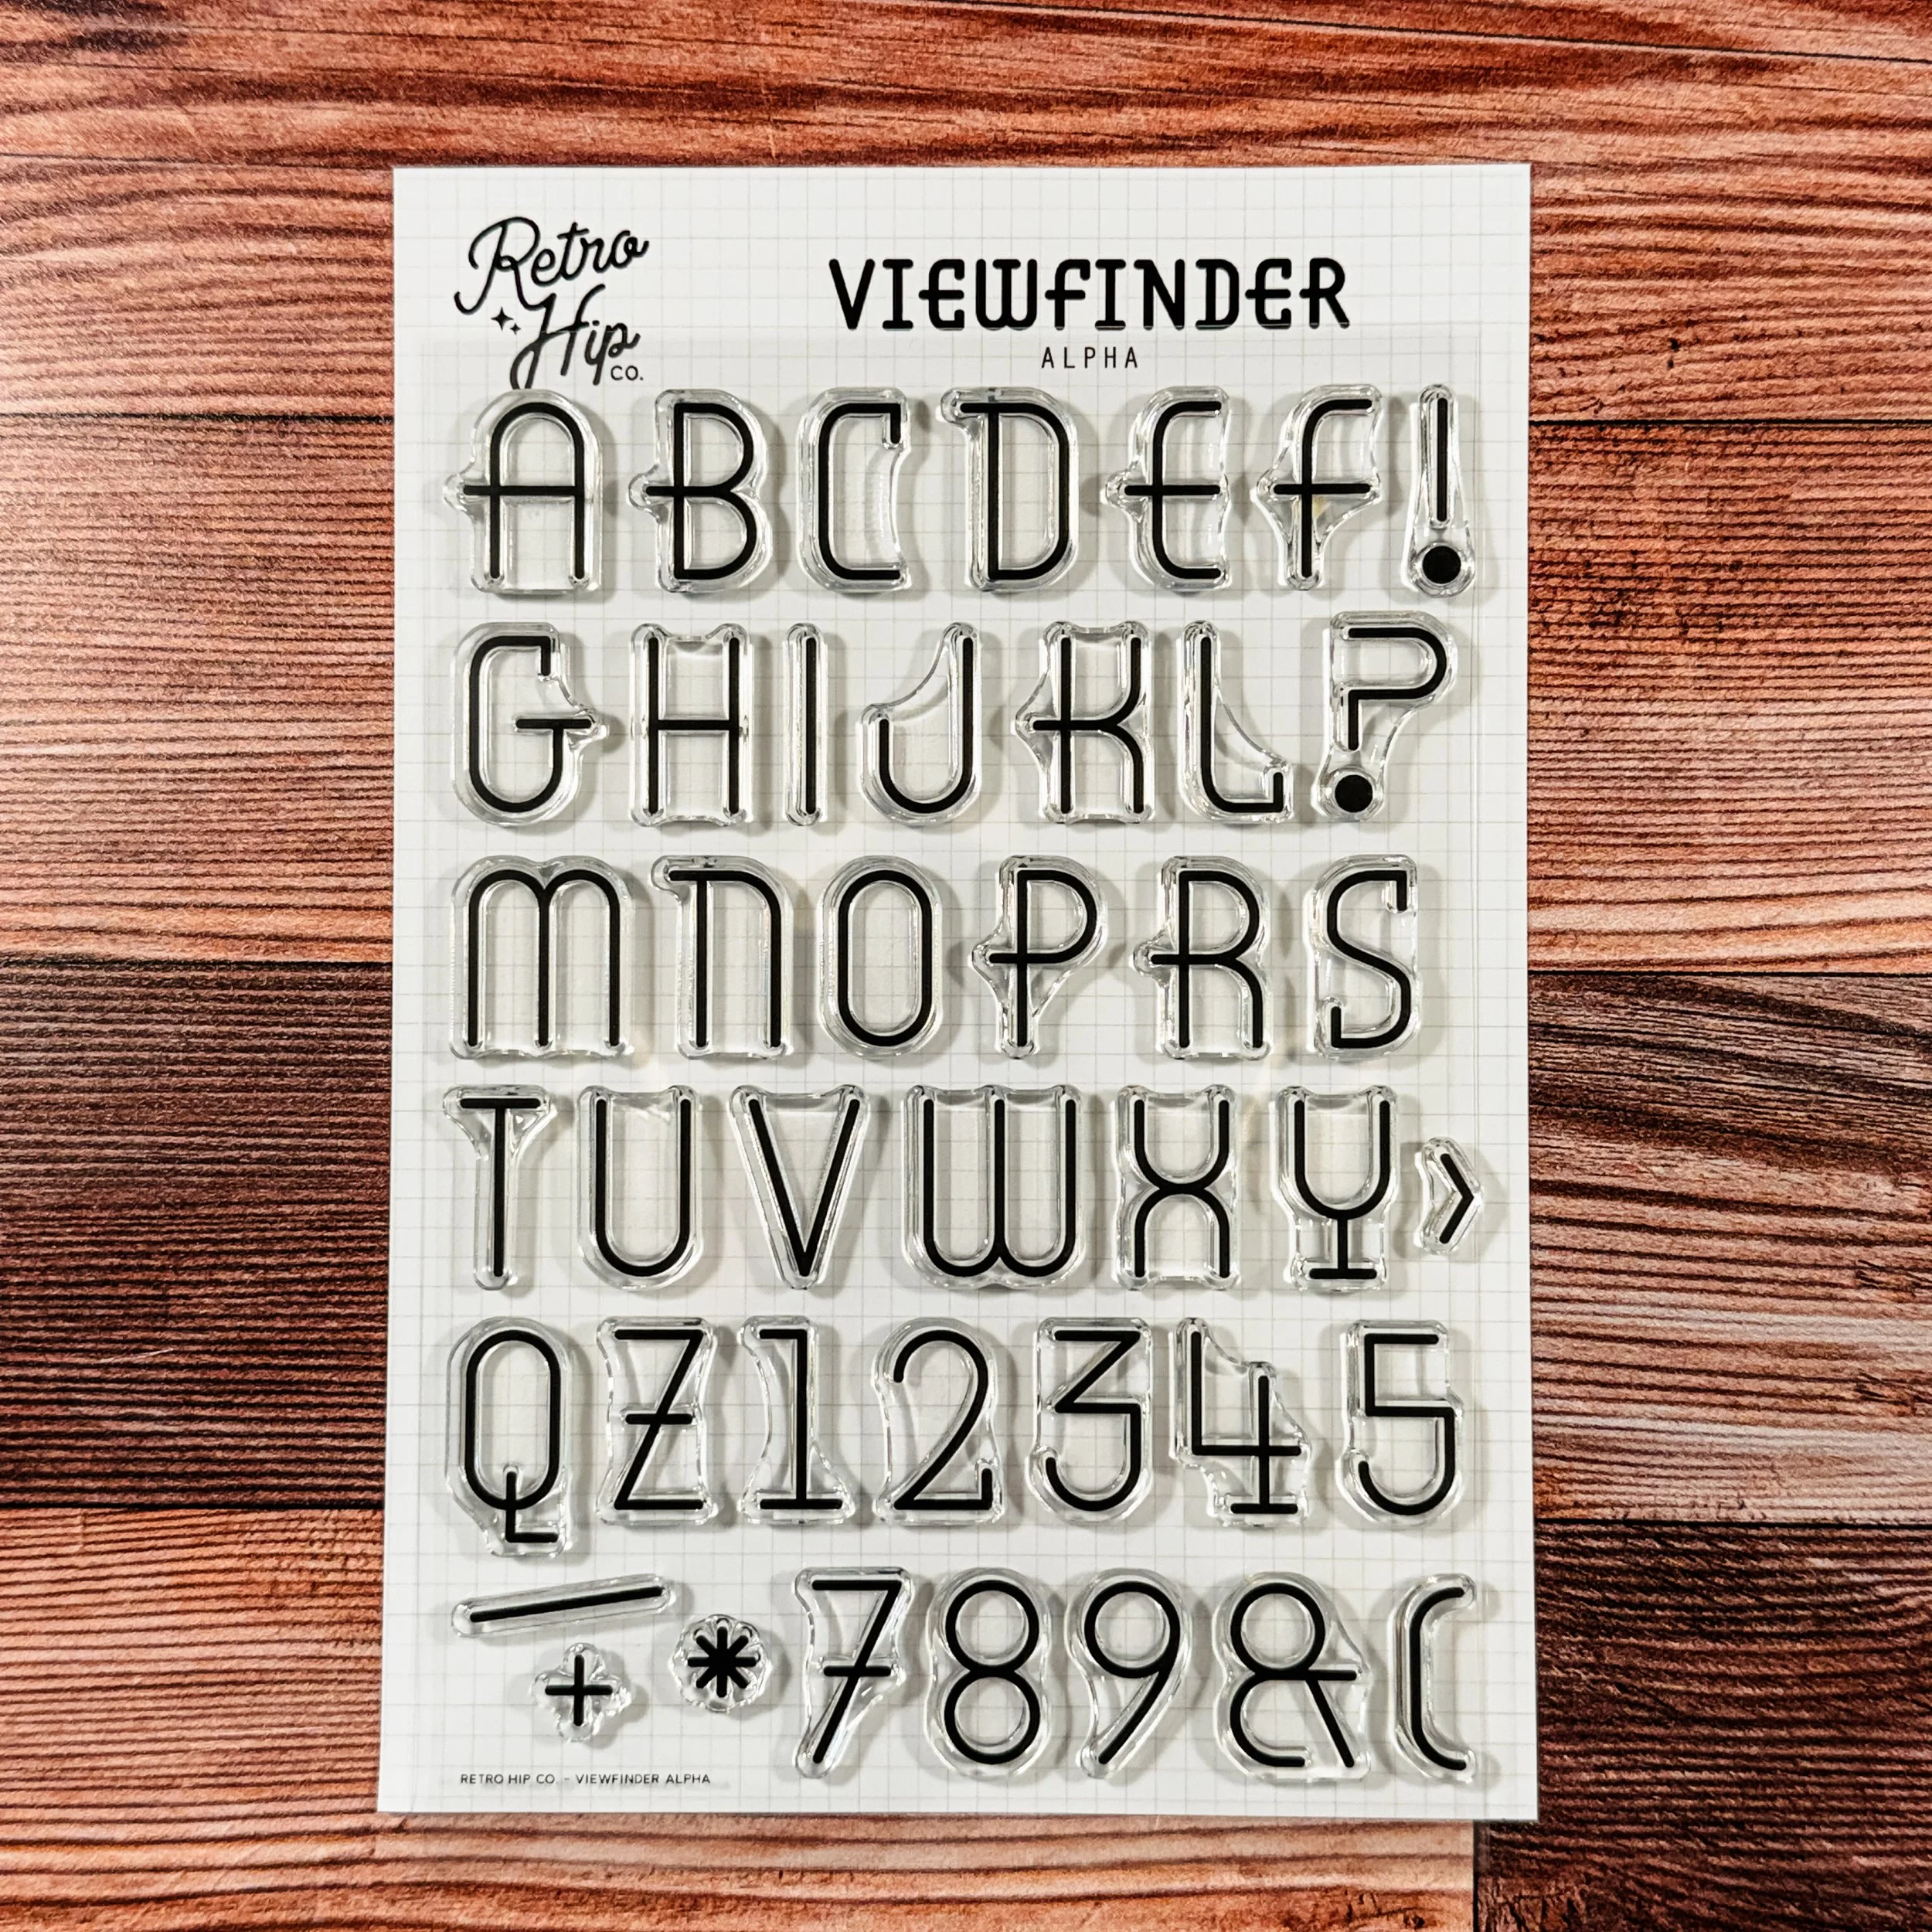 Retro
Hip
CO.
VIEWFINDER
ALPHA
A B C D E F !
G H I J K L ?
M N O P R S
T U V W X Y ›
Q Z 1 2 3 4 5
— + * 7 8 9 & (
RETRO HIP CO. - VIEWFINDER ALPHA